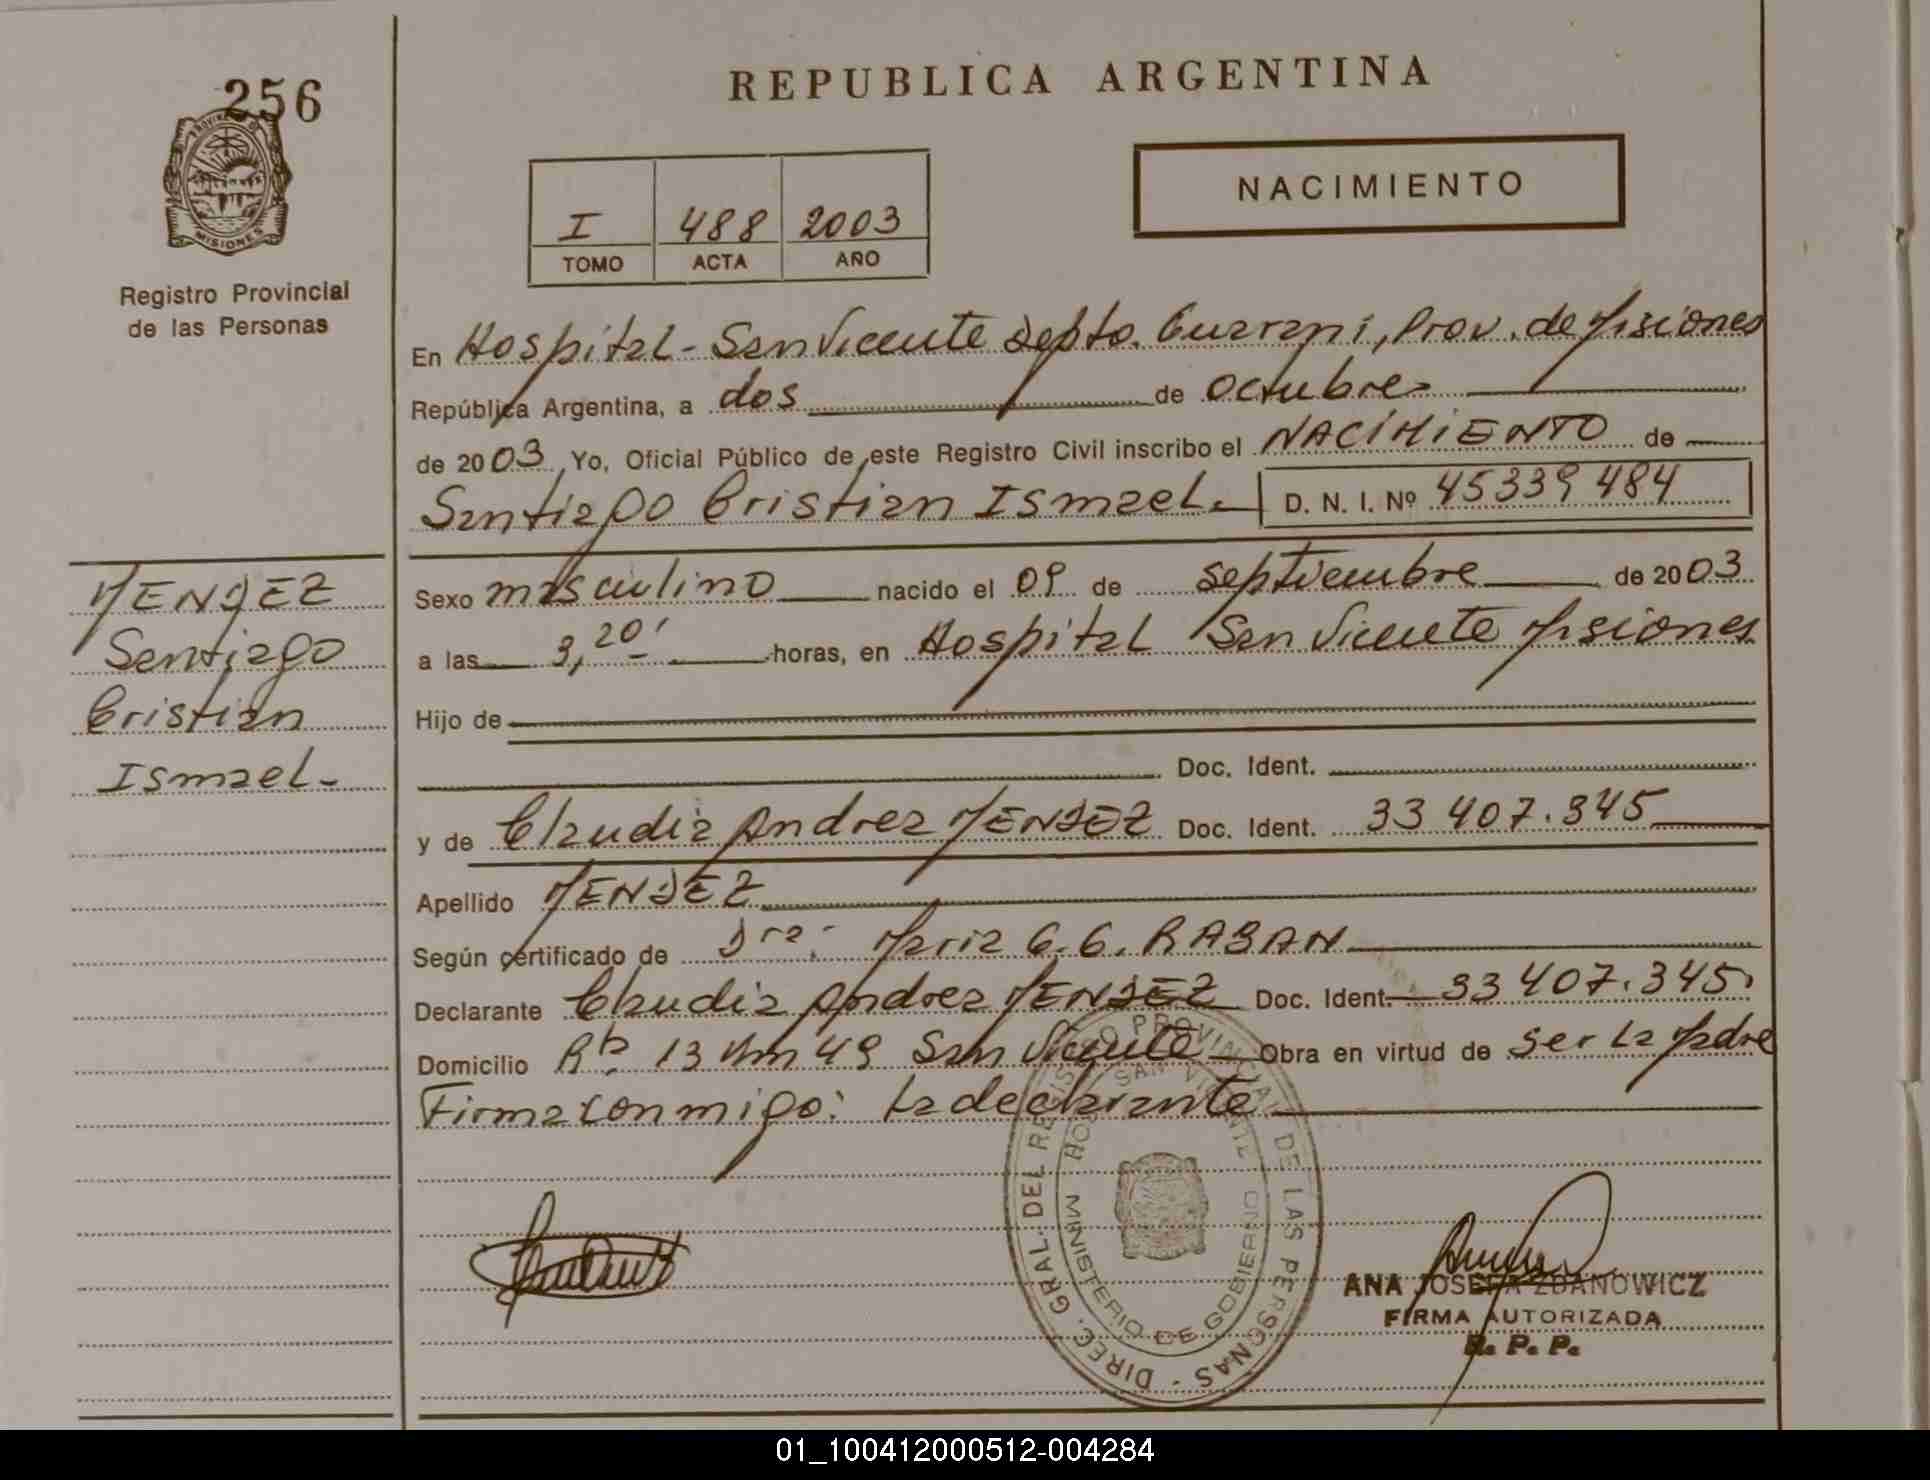 256
PROVINCIA DE
MISIONES
Registro Provincial
de las Personas
REPUBLICA ARGENTINA
NACIMIENTO
I 488 2003
TOMO ACTA AÑO
En Hospital - San Vicente Depto. Guarani, Prov. de Misiones
República Argentina, a dos de octubre
de 2003 Yo, Oficial Público de este Registro Civil inscribo el NACIMIENTO de
Santiago Cristian Ismael. D. N. I. Nº 45339484
MENDEZ
Santiago
Cristian
Ismael-
Sexo masculino nacido el 09 de septiembre de 2003
a las 3,20' horas, en Hospital San Vicente Misiones
Hijo de
Doc. Ident.
y de Claudia Andrea MENDEZ Doc. Ident. 33 407.345
Apellido MENDEZ
Según certificado de Dra: Maria G. G. RABAN
Declarante Claudia Andrea MENDEZ Doc. Ident. 33 407.345.
Domicilio Rta. 13 Km 49 San Vicente Obra en virtud de ser la Madre
Firma conmigo: La declarante
DIREC. GRAL. DEL REGISTRO PROVINCIAL DE LAS PERSONAS -
HOSP. SAN VICENTE
MINISTERIO DE GOBIERNO
ANA JOSEFA ZDANOWICZ
FIRMA AUTORIZADA
R. P. P.
01_100412000512-004284